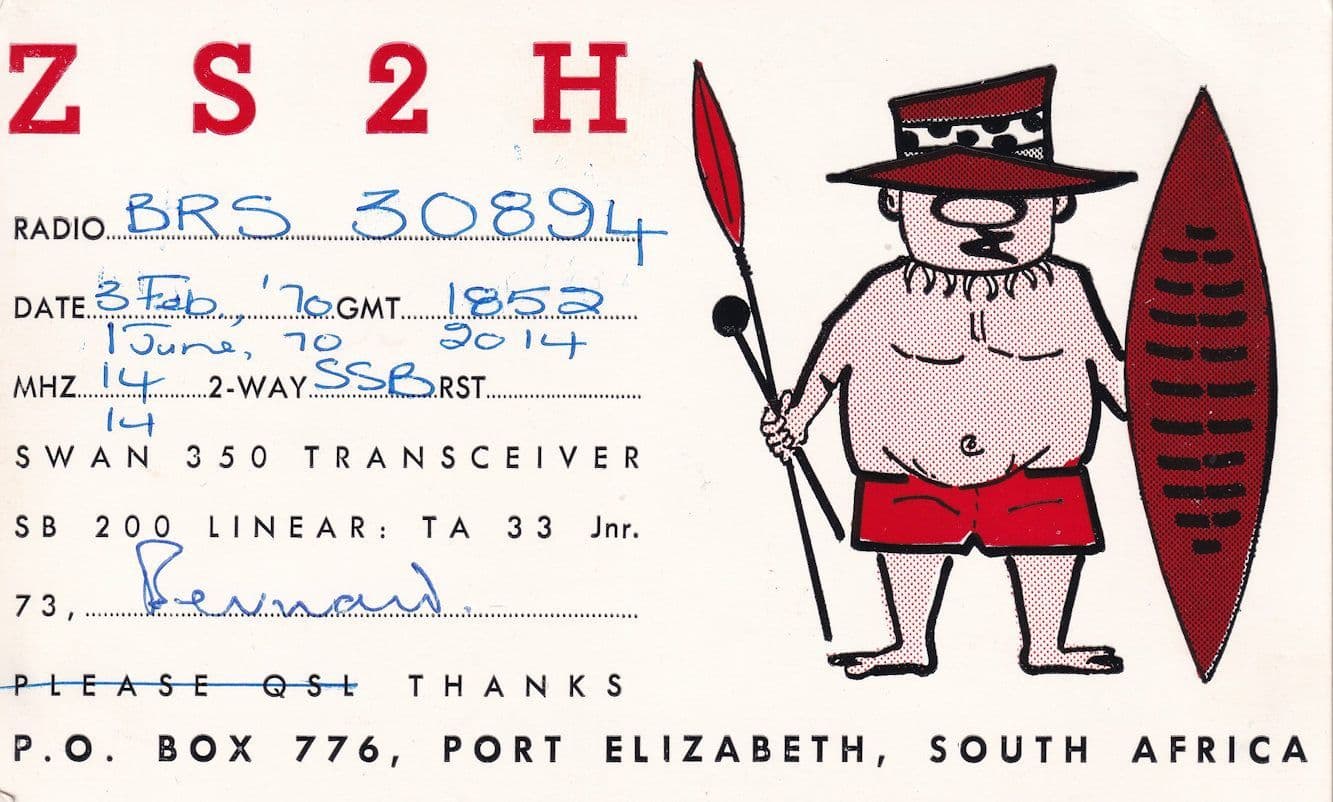 ZS2H
RADIO BRS 30894
DATE 3 Feb., '70 GMT 1852
1 June, 70 2014
MHZ 14 2-WAY SSB RST
14
SWAN 350 TRANSCEIVER
SB 200 LINEAR: TA 33 Jnr.
73, Bernard.
PLEASE QSL THANKS
P.O. BOX 776, PORT ELIZABETH, SOUTH AFRICA